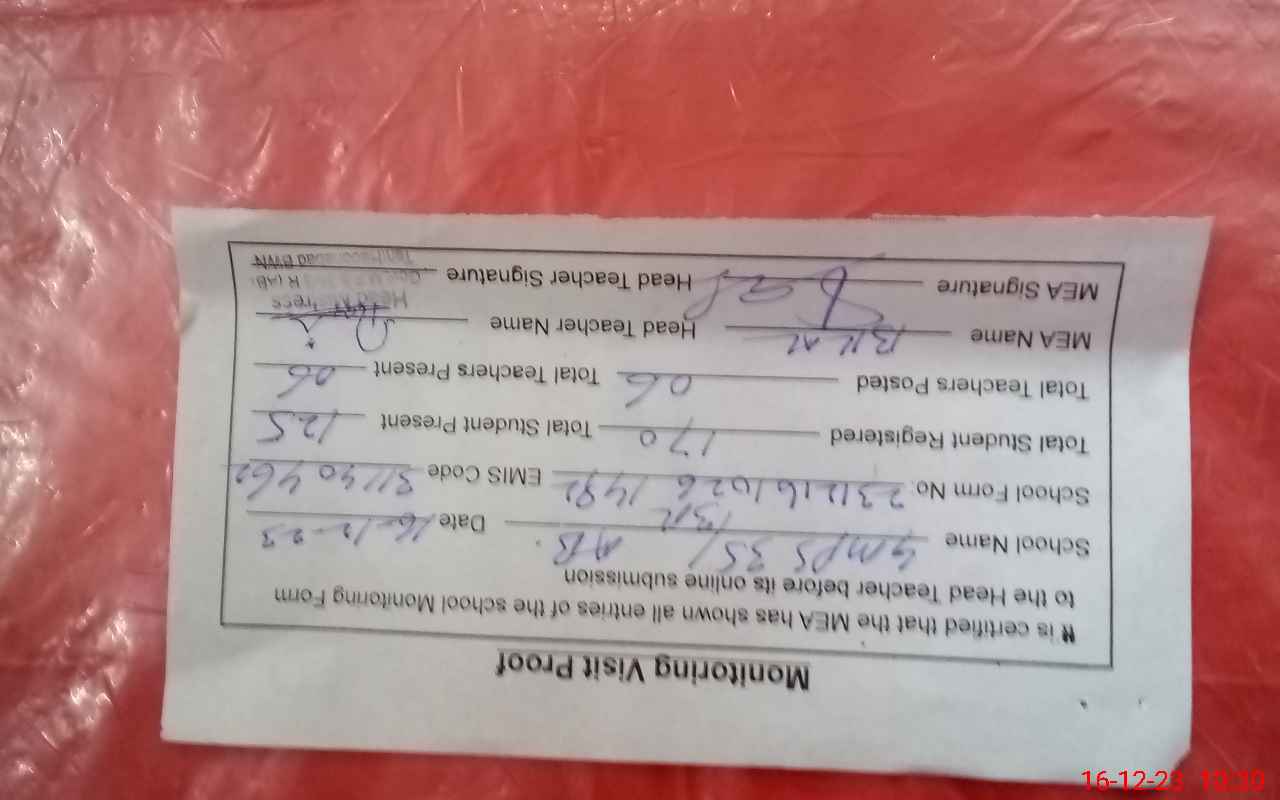 Monitoring Visit Proof
It is certified that the MEA has shown all entries of the school Monitoring Form
to the Head Teacher before its online submission
School Name GMPS 35/BR AB Date 16-12-23
School Form No: EMIS Code 31130462
Total Student Registered 170 Total Student Present 125
Total Teachers Posted 06 Total Teachers Present 06
MEA Name Head Teacher Name
MEA Signature Head Teacher Signature
16-12-23 10:30